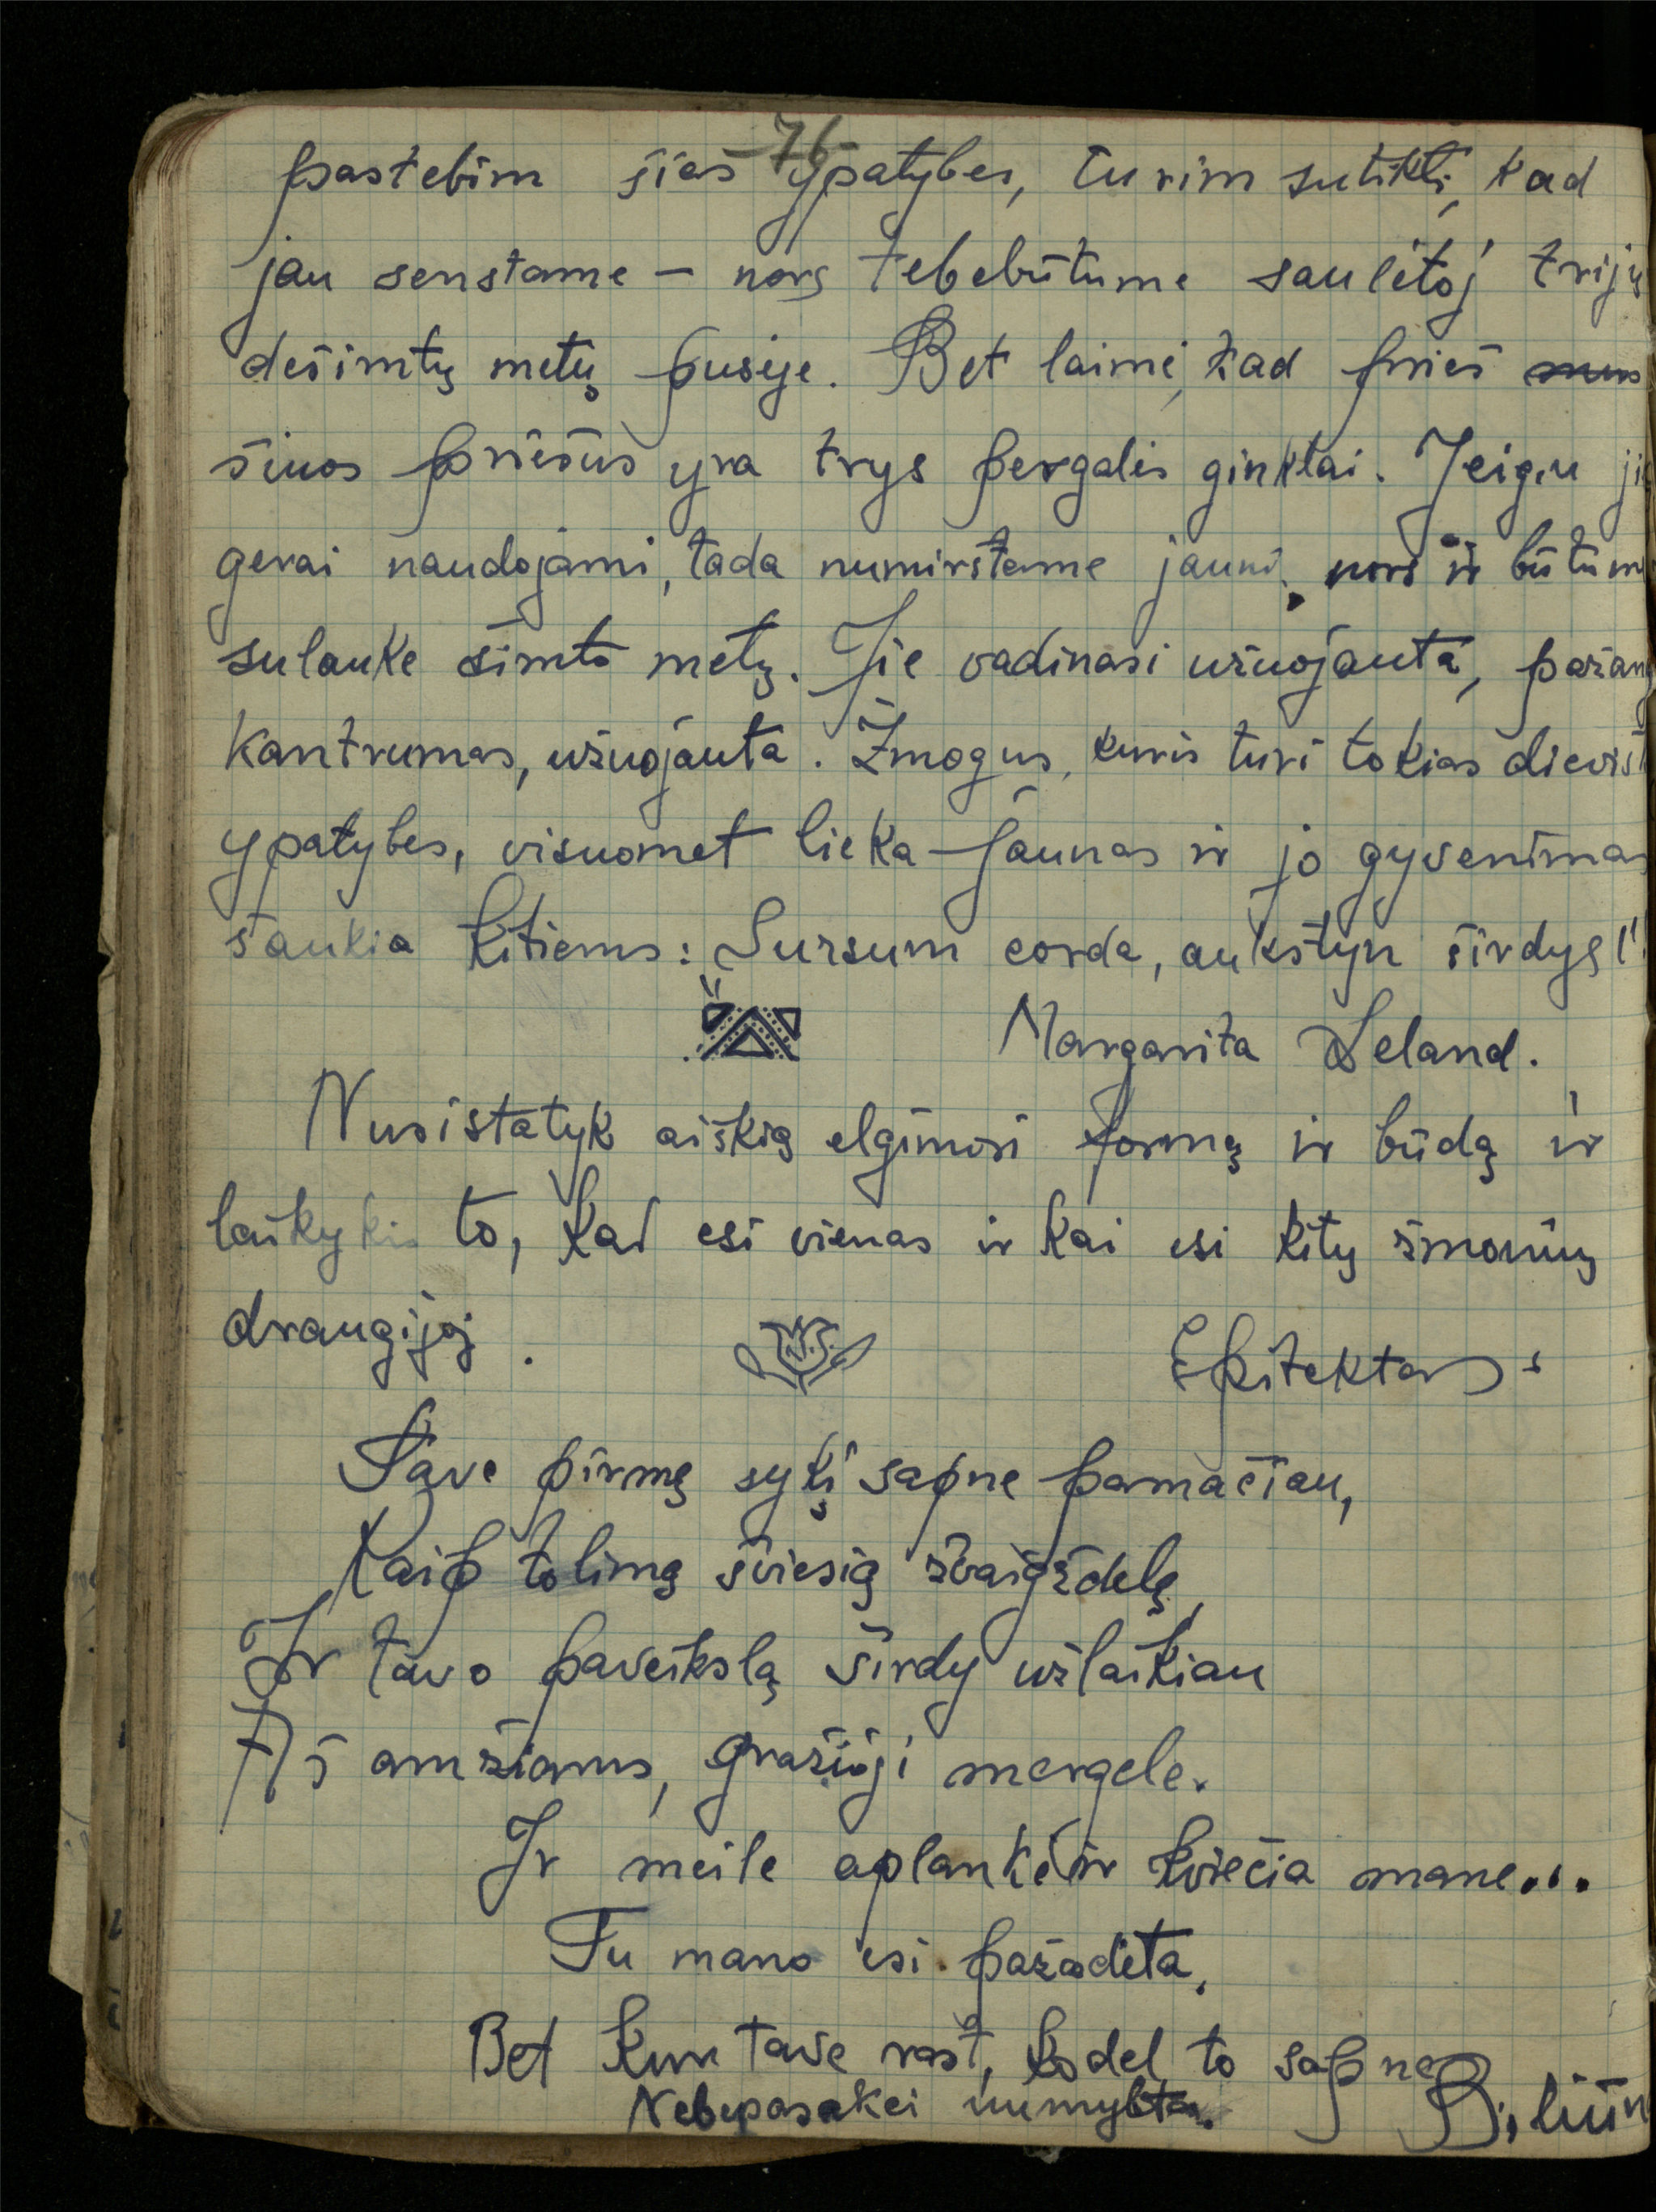 76
pastebim šias ypatybes, turim sutikti, kad
jau senstame – nors tebebūtume saulėtoj trijų
dešimtų metų pusėje. Bet laimė, kad prieš
šiuos priešus yra trys pergalės ginklai. Jeigu
gerai naudojami, tada numirštame jauni, nors ir būtum
sulaukę šimto metų. Jie vadinasi užuojauta, pažan
kantrumas, užuojauta. Žmogus, kuris turi tokias dievišk
ypatybes, visuomet lieka jaunas ir jo gyvenimas
šaukia kitiems: Sursum corda, aukštyn širdys!"
Margarita Leland.
Nusistatyk aiškią elgimosi formą ir būdą ir
laikykis to, kai esi vienas ir kai esi kitų žmonių
draugijoj.
Epitektas.
Tave pirmą sykį sapne pamačiau,
Kaip tolimą šviesią žvaigždelę,
Ir tavo paveikslą širdy užlaikiau
Aš amžiams, gražioji mergele.
Ir meilė aplankė ir kviečia mane...
Tu mano esi pažadėta,
Bet kur tave rast, kodel to sapne
Nebepasakei numylėta.
Biliūn